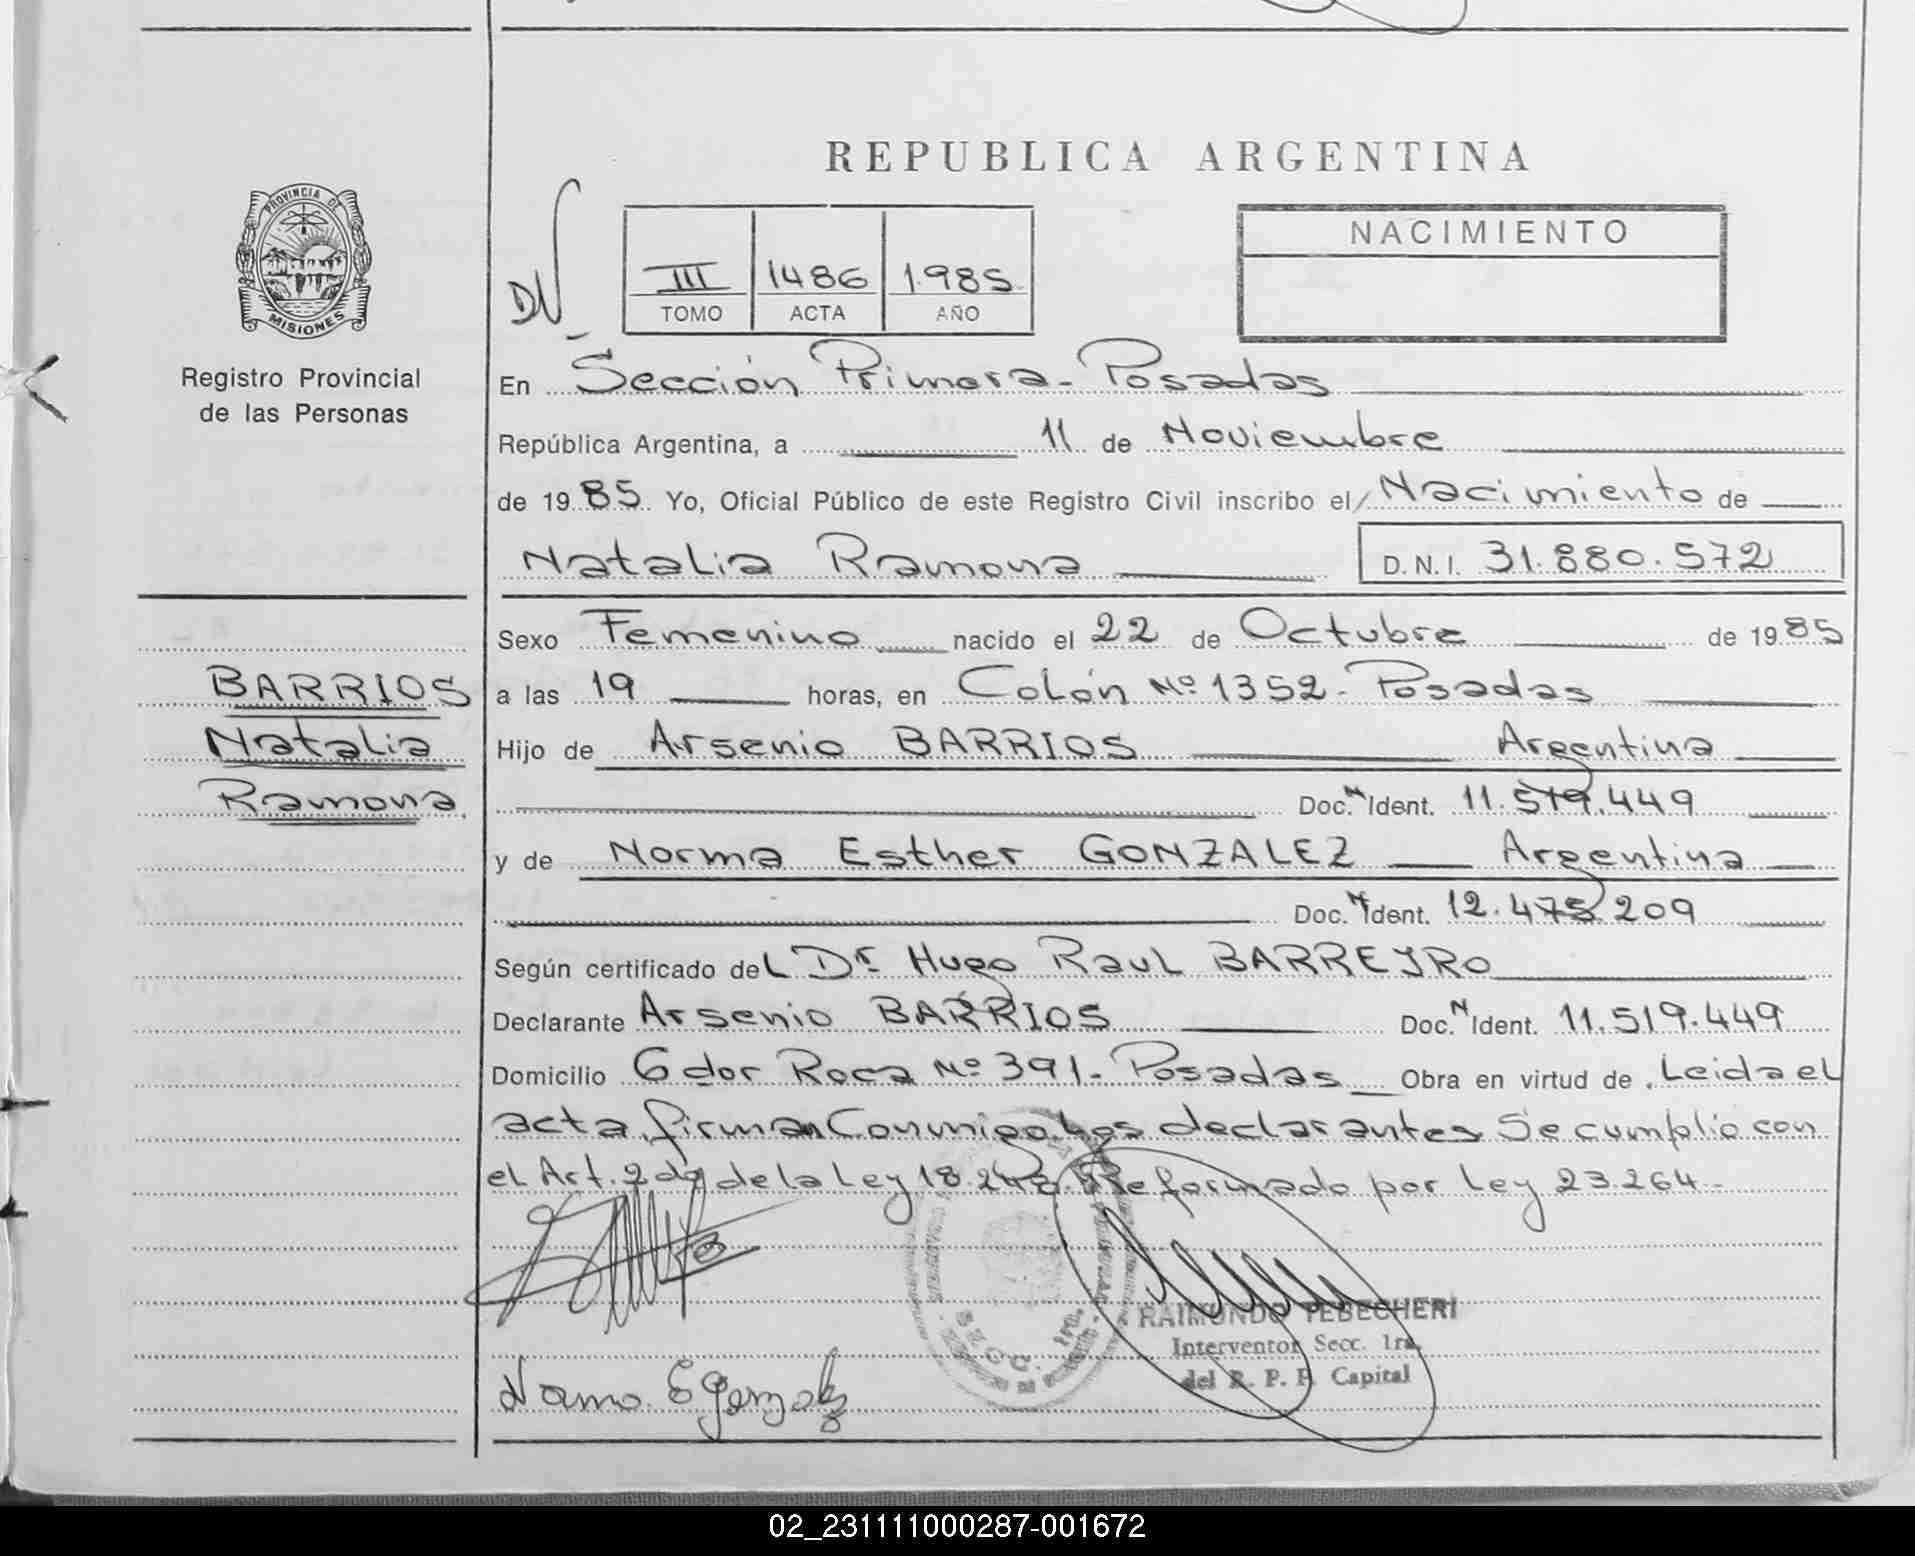 REPUBLICA ARGENTINA
PROVINCIA DE
MISIONES
Registro Provincial
de las Personas
III 1486 1.985
TOMO ACTA AÑO
NACIMIENTO
En Sección Primera - Posadas
República Argentina, a 11 de Noviembre
de 1985. Yo, Oficial Público de este Registro Civil inscribo el Nacimiento de
Natalia Ramona D.N.I. 31.880.572
Sexo Femenino nacido el 22 de Octubre de 1985
BARRIOS
Natalia
Ramona
a las 19 horas, en Colón Nº 1352 - Posadas
Hijo de Arsenio BARRIOS Argentina
Doc. N Ident. 11.519.449
y de Norma Esther GONZALEZ Argentina
Doc. N Ident. 12.475.209
Según certificado del Dr. Hugo Raul BARREYRO
Declarante Arsenio BARRIOS Doc. N Ident. 11.519.449
Domicilio Gdor Roca Nº 391 - Posadas Obra en virtud de Leida el
acta, firman Conmigo los declarantes Se cumplió con
el Art. 2do de la Ley 18.248. Reformado por Ley 23.264.-
SECC. 1ra.
RAIMUNDO TEBECHERI
Interventor Secc. 1ra.
del R. P. P. Capital
Norma E Gonzalez
02_231111000287-001672